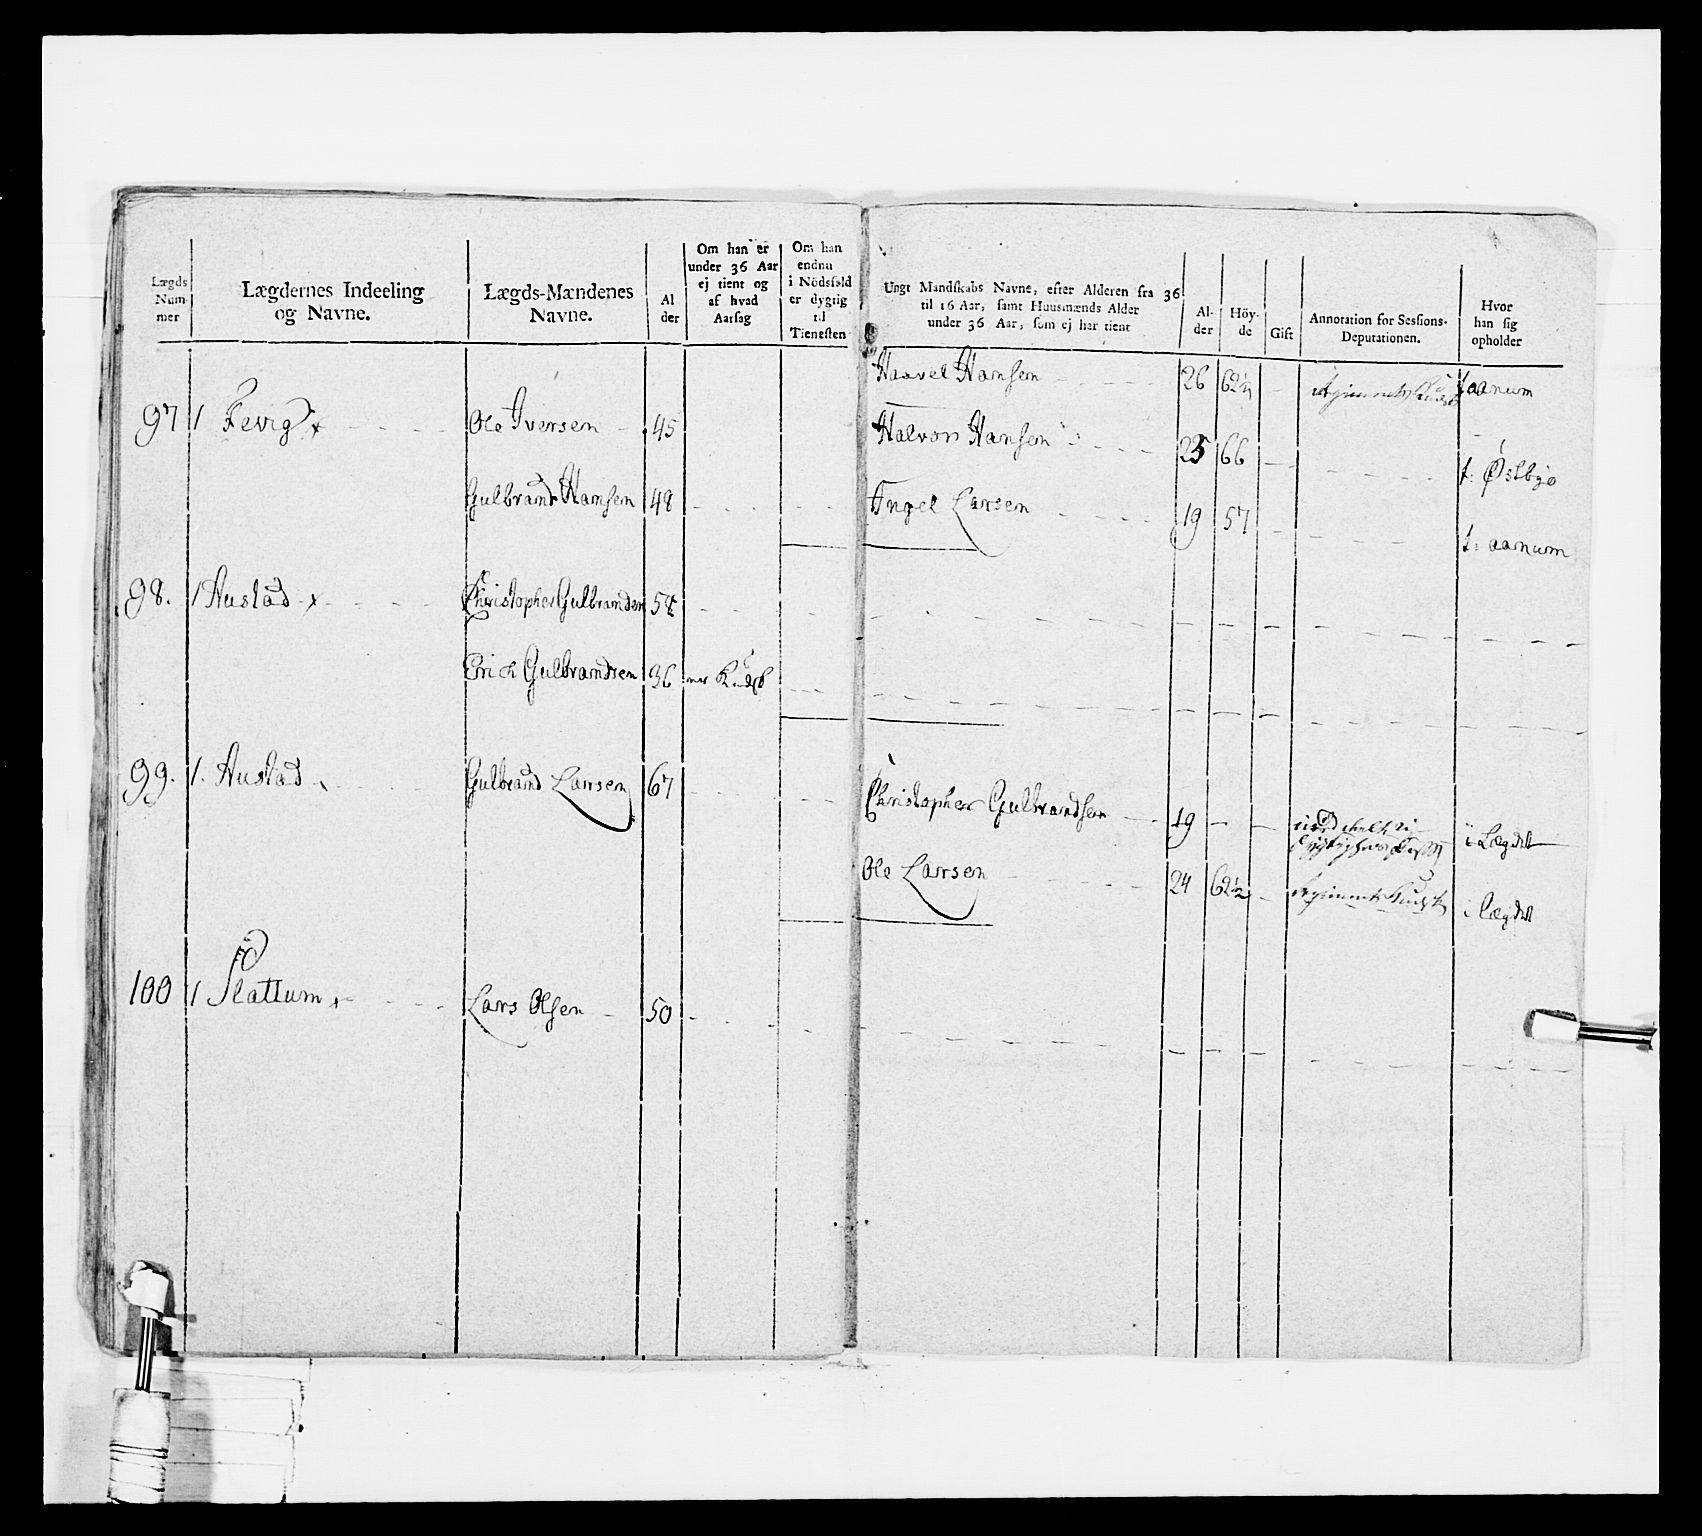 Lægds
Num-
mer
Lægdernes Indeeling
og Navne.
Lægds-Mændenes
Navne.
Al
der
Om han er
under 36 Aar
ej tient og
af hvad
Aarsag
Om han
endnu
i Nödsfald
er dygtig
til
Tienesten
Ungt Mandskabs Navne, efter Alderen fra 36
til 16 Aar, samt Huusmænds Alder
under 36 Aar, som ej har tient
Al-
der
Höy-
de
Gift
Annotation for Sessions-
Deputationen.
Hvor
han sig
opholder
Haavel Hansen 26 62½ aanum
97 1 Fevig Ole Iversen 45
Halvor Hansen 25 66 Østbye
Gulbrand Hansen 48
Engel Larsen 19 57 aanum
98. 1 Austad Christopher Gulbrandsen 58
Erich Gulbrandsen 36
99. 1. Austad Gulbrand Larsen 67
Christopher Gulbrandsen 19 i Lægdet
Ole Larsen 24 62½ i lægdet
100 1 Slattum Lars Olsen 50